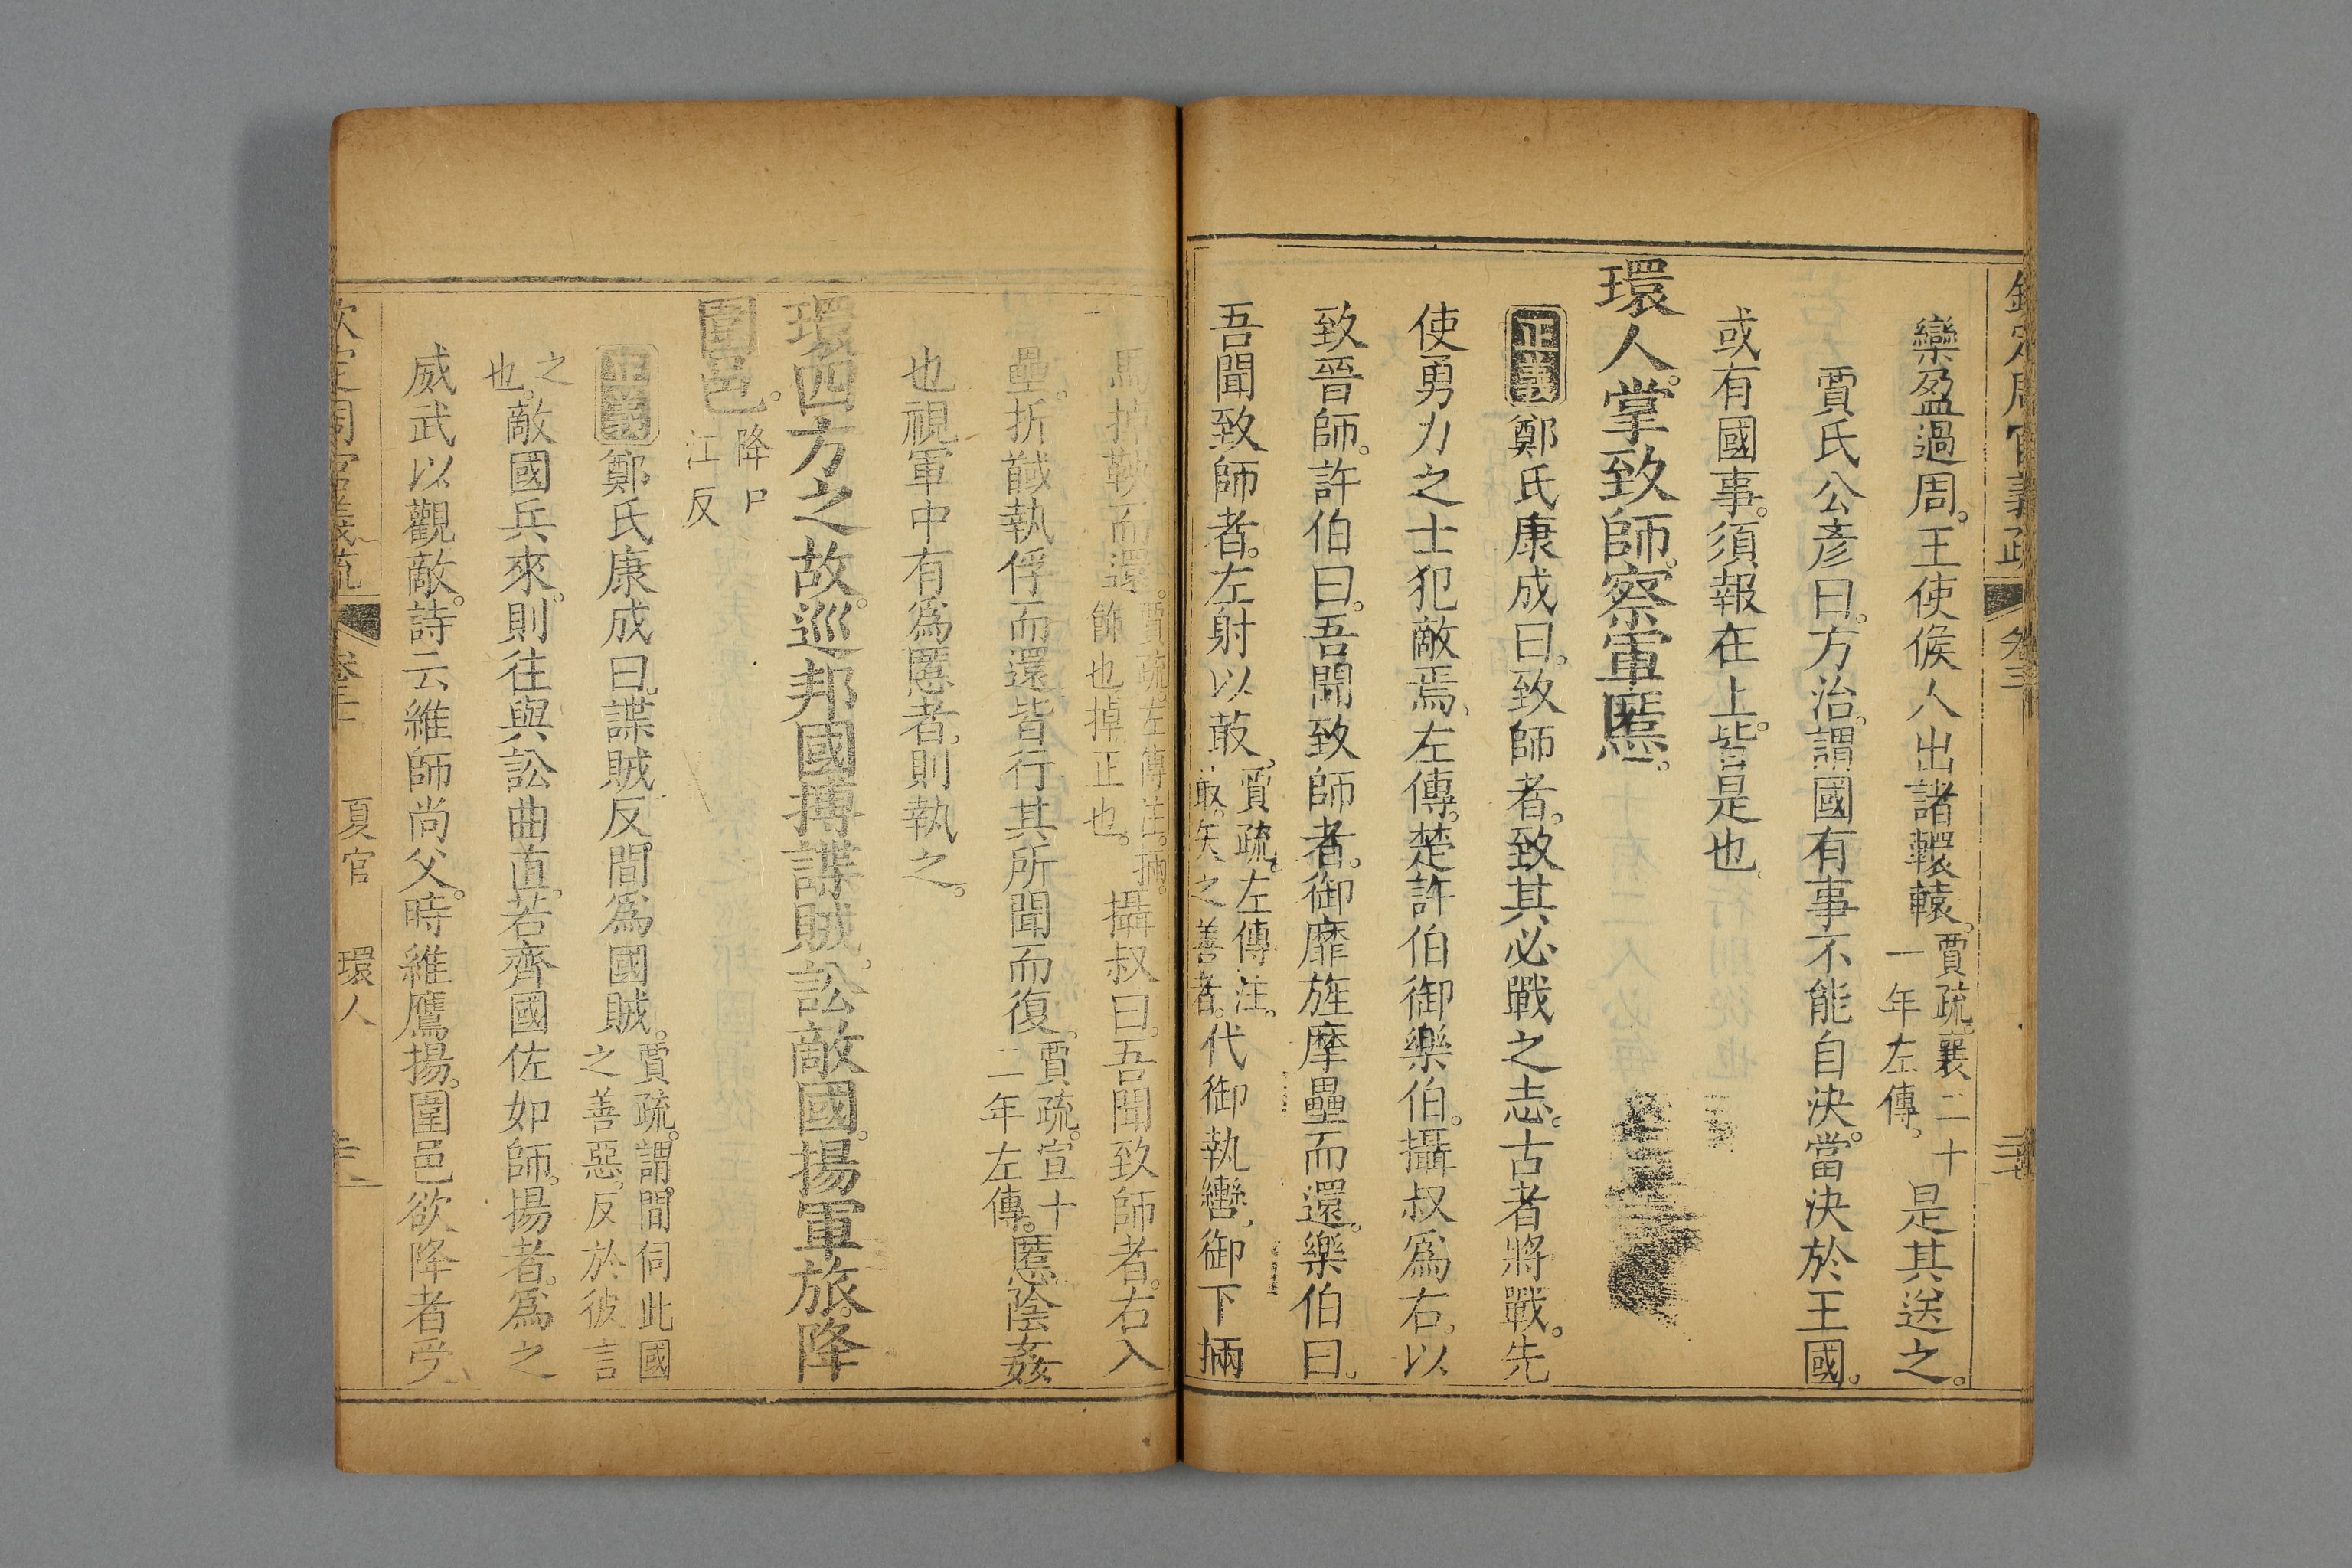 欒盈過周。王使候人出諸轘轅。賈疏。襄二十一年左傳。是其送之。
賈氏公彥曰。方治。謂國有事不能自決。當決於王國。
或有國事。須報在上。皆是也。
環人。掌致師。察軍慝。
正義 鄭氏康成曰。致師者。致其必戰之志。古者將戰。先
使勇力之士犯敵焉。左傳。楚許伯御樂伯。攝叔爲右。以
致晉師。許伯曰。吾聞致師者。御靡旌摩壘而還。樂伯曰。
吾聞致師者。左射以菆。賈疏。左傳注。菆。矢之善者。代御執轡。御下掚
馬掉鞅而還。賈疏。左傳注。掚。飾也。掉。正也。攝叔曰。吾聞致師者。右入
壘。折馘執俘而還。皆行其所聞而復。賈疏。宣十二年左傳。慝。陰姦
也。視軍中有爲慝者。則執之。
環四方之故。巡邦國。搏諜賊。訟敵國。揚軍旅。降
圍邑。降戶江反
正義 鄭氏康成曰。諜賊。反間爲國賊。賈疏。謂間伺此國之善惡。反於彼言
之也。敵國兵來。則往與訟曲直。若齊國佐如師。揚者。爲之
威武以觀敵。詩云維師尚父。時維鷹揚。圍邑欲降者受
欽定周官義疏 夏官 環人